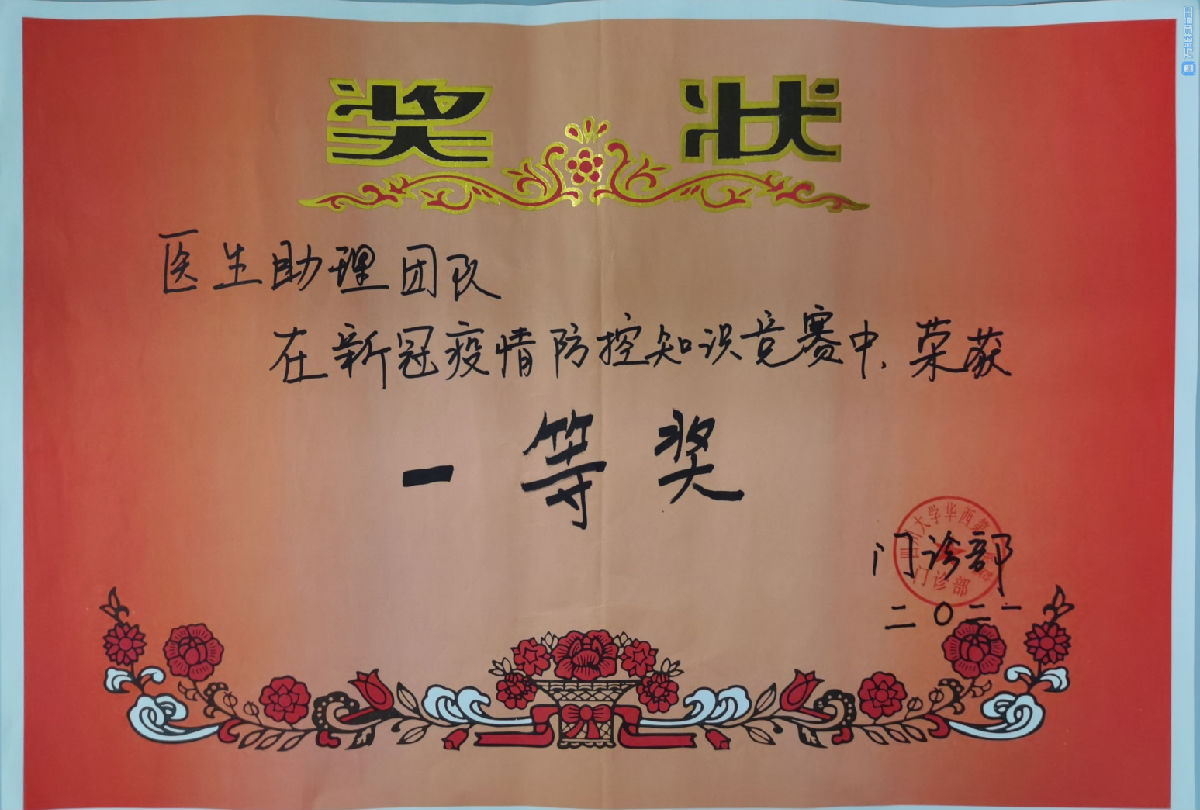 奖状
医生助理团队
在新冠疫情防控知识竞赛中,荣获
一等奖
四川大学华西第
门诊部
门诊部
二〇二一